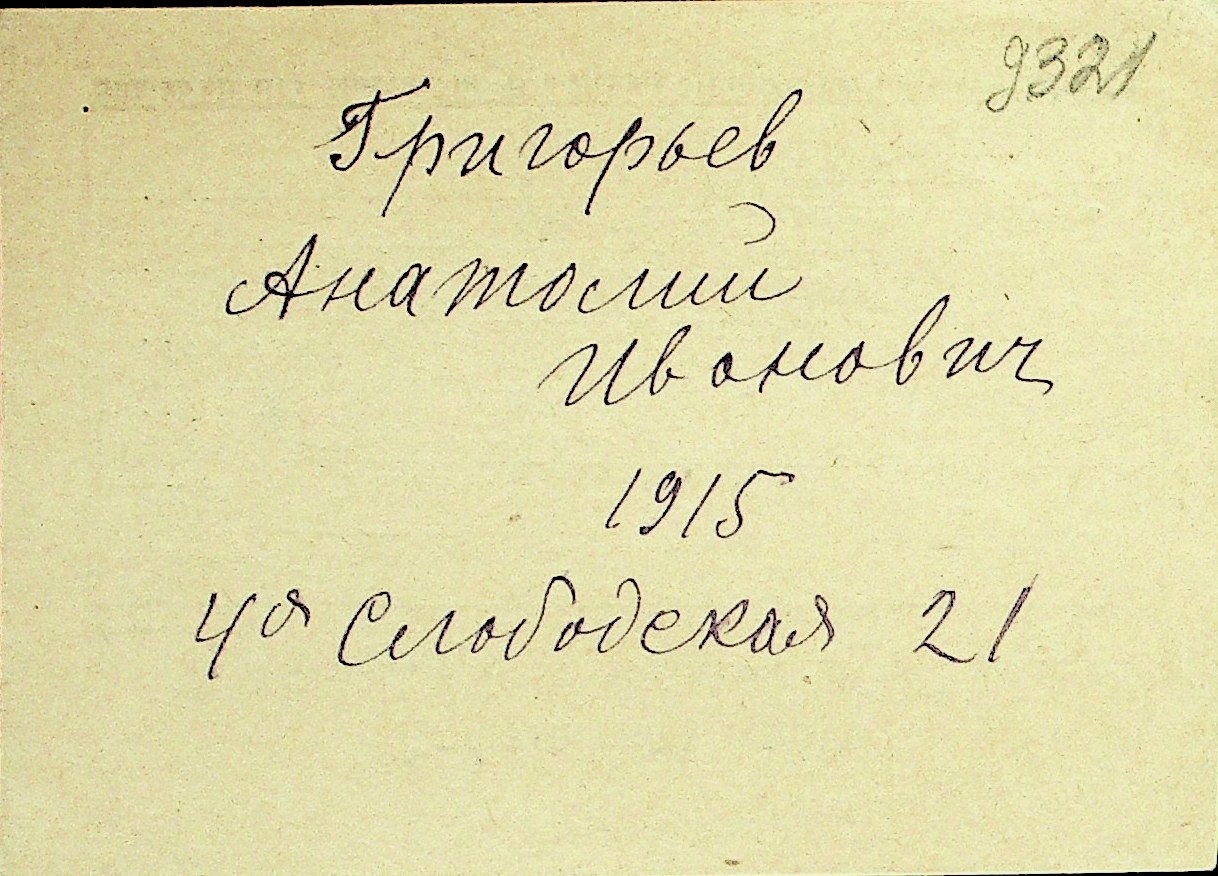 9321
Григорьев
Анатолий
Иванович
1915
4я Слободская 21